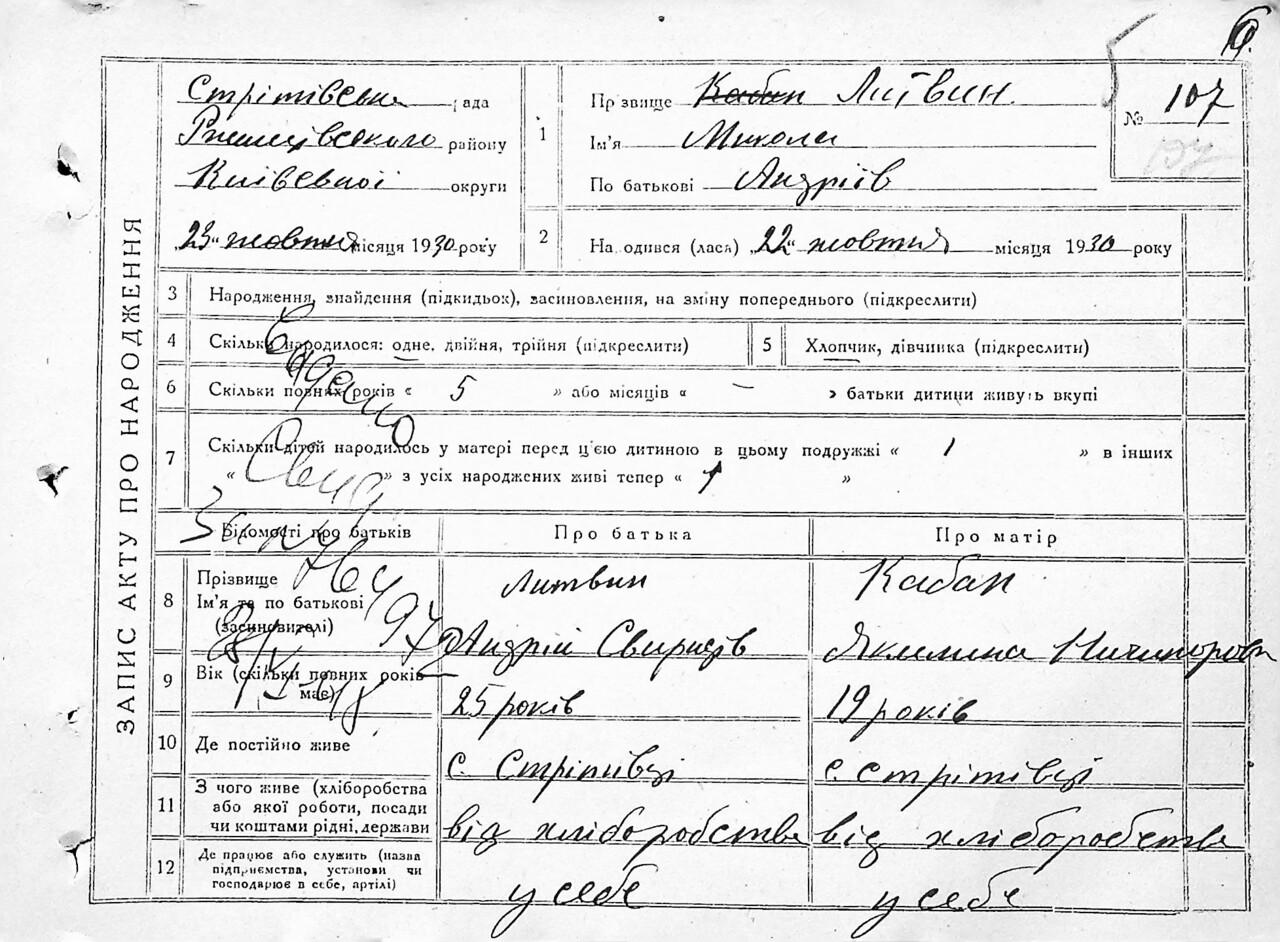 6.
ЗАПИС АКТУ ПРО НАРОДЖЕННЯ
Стрітівська рада
Ржищівського району
Київської округи
23 „ жовтня місяця 1930 року
1
Прізвище Кабан Литвин.
Ім'я Микола
По батькові Андріїв
№ 107
107
2 На одився (лась) „ 22 “ жовтня місяця 1930 року
3 Народження, знайдення (підкидьок), засиновлення, на зміну попереднього (підкреслити)
4 Скільки народилося: одне, двійня, трійня (підкреслити)
5 Хлопчик, дівчинка (підкреслити)
6 Скільки повних років « 5 » або місяців « — » батьки дитини живуть вкупі
7 Скільки дітей народилось у матері перед ц'єю дитиною в цьому подружжі « 1 » в інших
“ » з усіх народжених живі тепер “ 1 ”
Відомості про батьків
Про батька
Про матір
8 Прізвище
Ім'я та по батькові
(засиновителі)
Литвин
Андрій
Кабан
9 Вік (скільки повних років
має)
25 років
19 років
10 Де постійно живе
с. Стрітівці
с. Стрітівці
11 З чого живе (хліборобства
або якої роботи, посади
чи коштами рідні, держави
від хліборобства
від хліборобства
12 Де працює або служить (назва
підприємства, установи чи
господарює в себе, артілі)
у себе
у себе